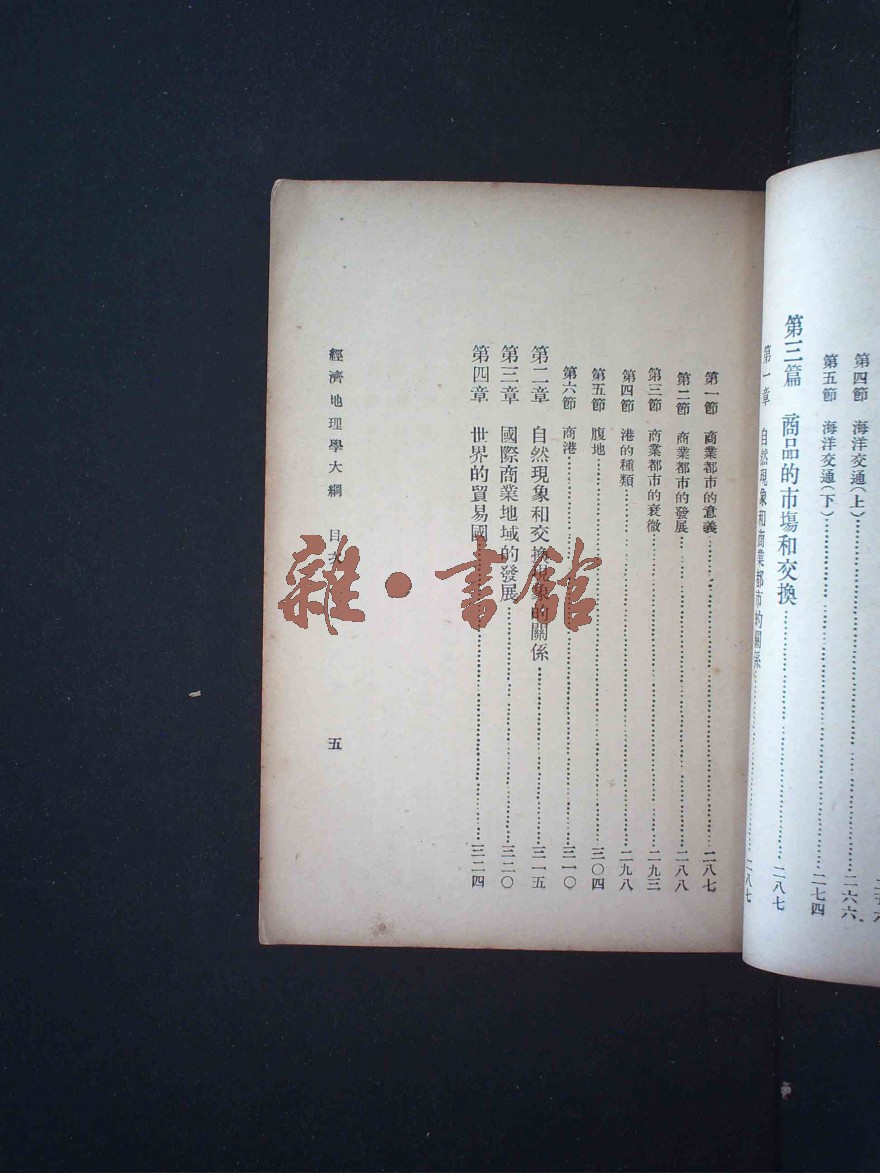 第四節 海洋交通(上)……二六六
第五節 海洋交通(下)……二七四
第三篇 商品的市塲和交換……二八七
第一章 自然現象和商業都市的關係……二八七
第一節 商業都市的意義……二八七
第二節 商業都市的發展……二八八
第三節 商業都市的衰微……二九三
第四節 港的種類……二九八
第五節 腹地……三〇四
第六節 商港……三一〇
第二章 自然現象和交換現象的關係……三一五
第三章 國際商業地域的發展……三二〇
第四章 世界的貿易國……三二四
經濟地理學大綱 目次 五
雜·書館